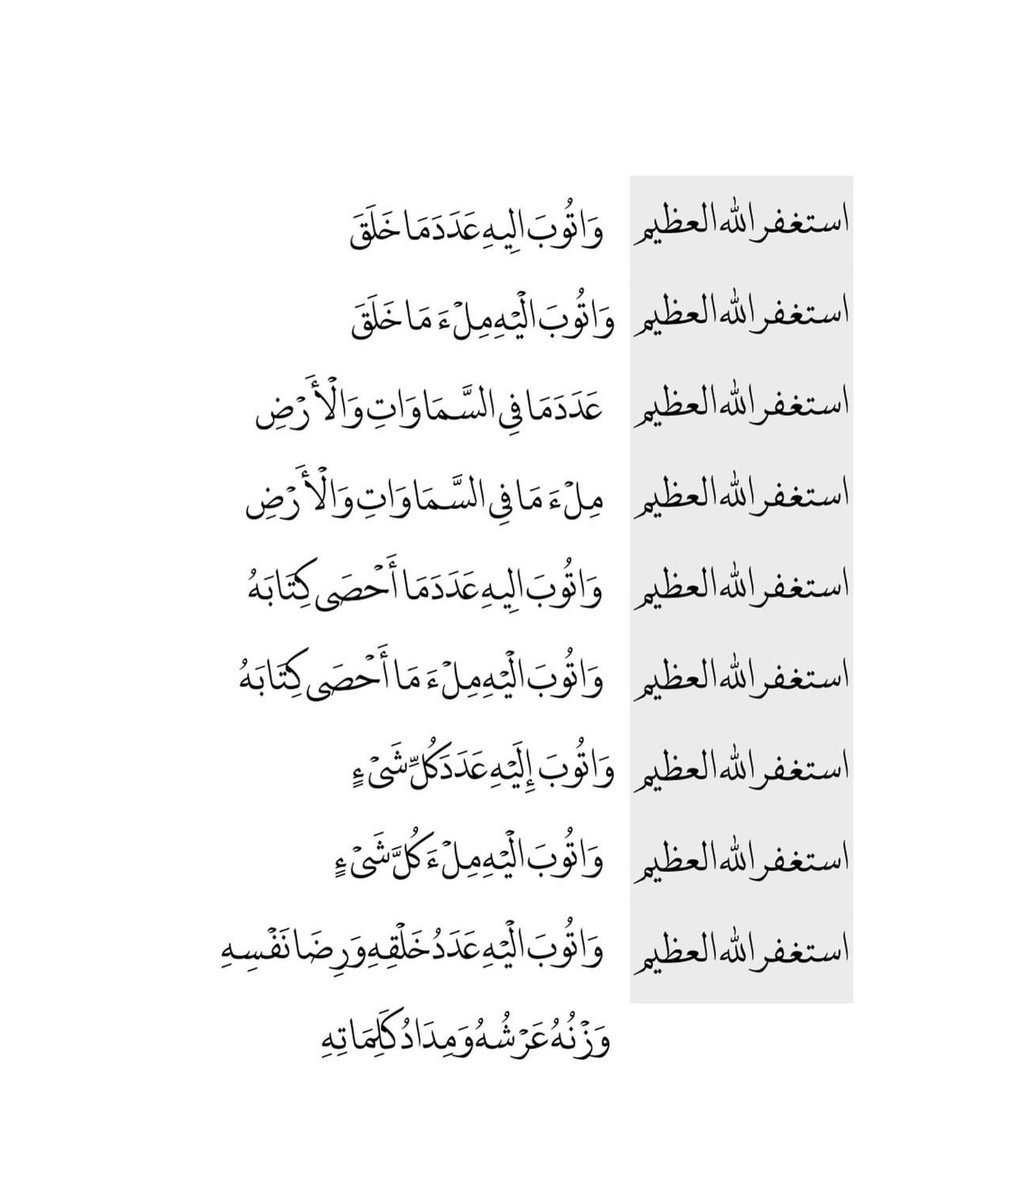 استغفر الله العظيم وَاتُوبَ اِلِيهِ عَدَدَ مَا خَلَقَ
استغفر الله العظيم وَاتُوبَ الْيْهِ مِلْءَ مَا خَلَقَ
استغفر الله العظيم عَدَدَ مَا فِي السَّمَاوَاتِ وَالْأَرْضِ
استغفر الله العظيم مِلْءَ مَا فِي السَّمَاوَاتِ وَالْأَرْضِ
استغفر الله العظيم وَاتُوبَ اِلِيهِ عَدَدَ مَا أَحْصَى كِتَابَهُ
استغفر الله العظيم وَاتُوبَ الْيْهِ مِلْءَ مَا أَحْصَى كِتَابَهُ
استغفر الله العظيم وَاتُوبَ إِلَيْهِ عَدَدَ كُلِّ شَيْءٍ
استغفر الله العظيم وَاتُوبَ الْيْهِ مِلْءَ كُلَّ شَيْءٍ
استغفر الله العظيم وَاتُوبَ الْيْهِ عَدَدُ خَلْقِهِ وَرِضَا نَفْسِهِ
وَزْنُهُ عَرْشُهُ وَمِدَادُ كَلِمَاتِهِ